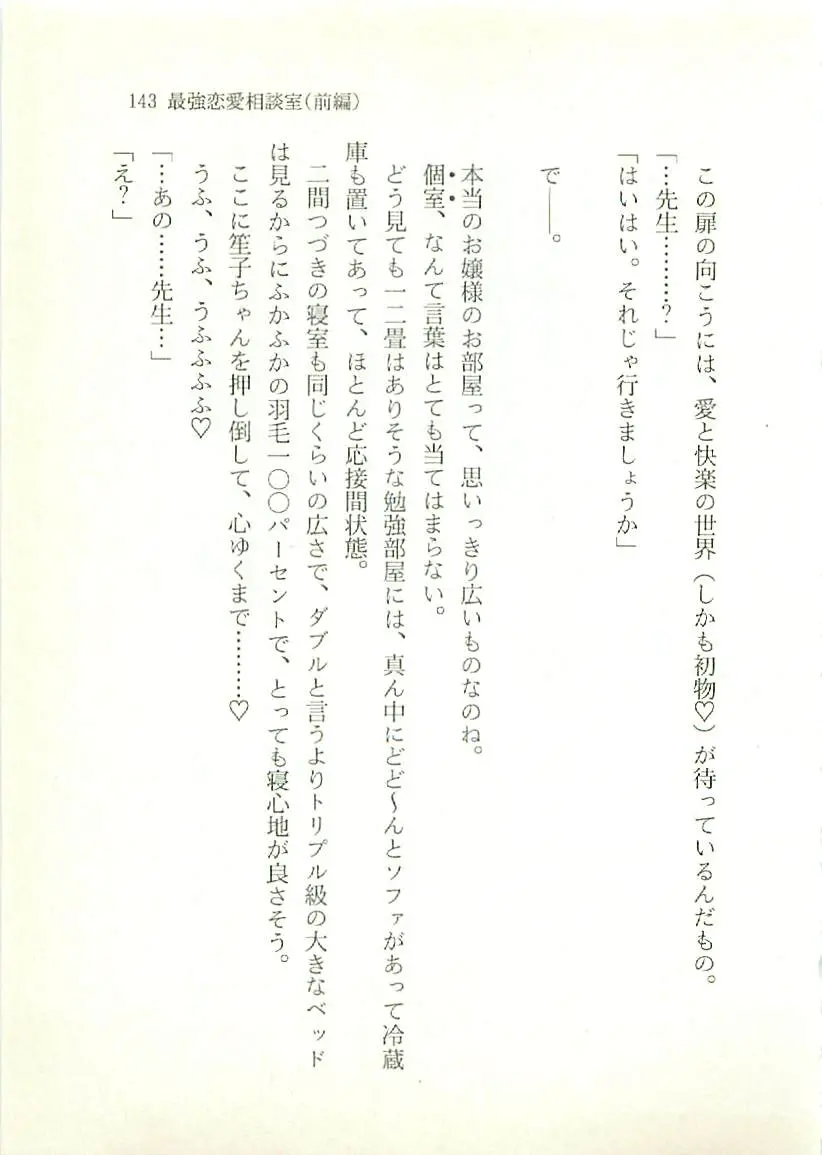 143 最強恋愛相談室(前編)
この扉の向こうには、愛と快楽の世界（しかも初物♡）が待っているんだもの。
「…先生………？」
「はいはい。それじゃ行きましょうか」
で――。
本当のお嬢様のお部屋って、思いっきり広いものなのね。
個室、なんて言葉はとても当てはまらない。
どう見ても一二畳はありそうな勉強部屋には、真ん中にどど〜んとソファがあって冷蔵
庫も置いてあって、ほとんど応接間状態。
二間つづきの寝室も同じくらいの広さで、ダブルと言うよりトリプル級の大きなベッド
は見るからにふかふかの羽毛一〇〇パーセントで、とっても寝心地が良さそう。
ここに笙子ちゃんを押し倒して、心ゆくまで………♡
うふ、うふ、うふふふふ♡
「…あの……先生…」
「え？」